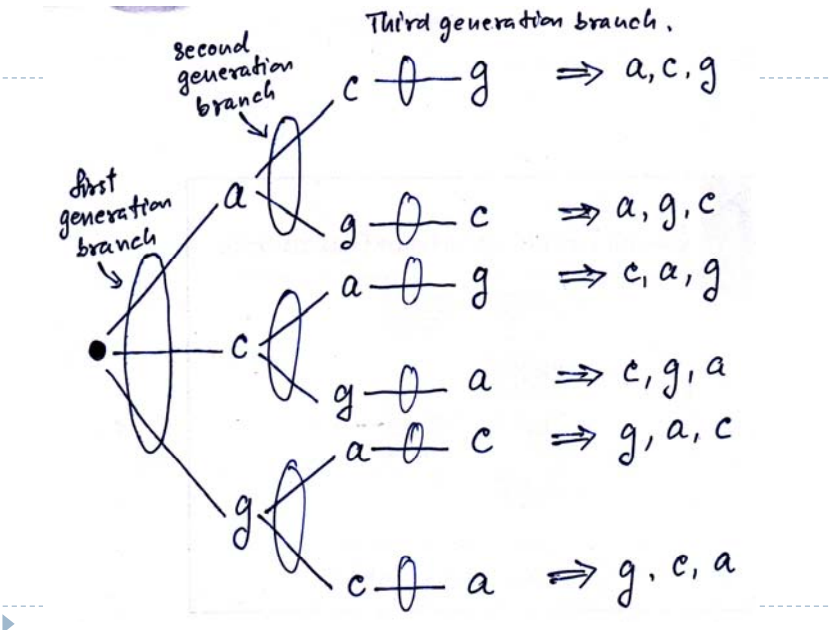 Third generation branch.
second
generation
branch
c g ⇒ a, c, g
first
generation
branch
a
g c ⇒ a, g, c
a g ⇒ c, a, g
c
g a ⇒ c, g, a
a c ⇒ g, a, c
g
c a ⇒ g, c, a